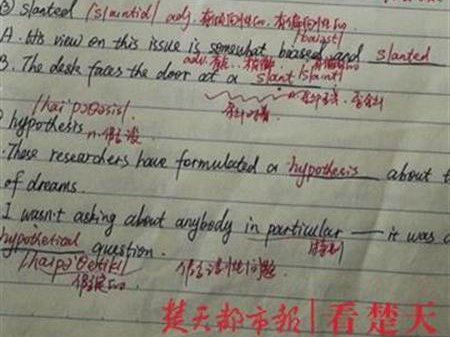 ③ slanted /slaintid/ adj. 有倾向性的, 有偏向性的
/baiast/
A. His view on this issue is somewhat biased and slanted
adv. 有点
B. The desk faces the door at a slant /slaint/
hypothesis /hai'pɔθəsis/ n. 假设
These researchers have formulated a hypothesis about t
of dreams.
I wasn't asking about anybody in particular — it was a
特别
hypothetical question.
/haipə'θetikl/ 假设性问题
假定的
楚天都市报|看楚天